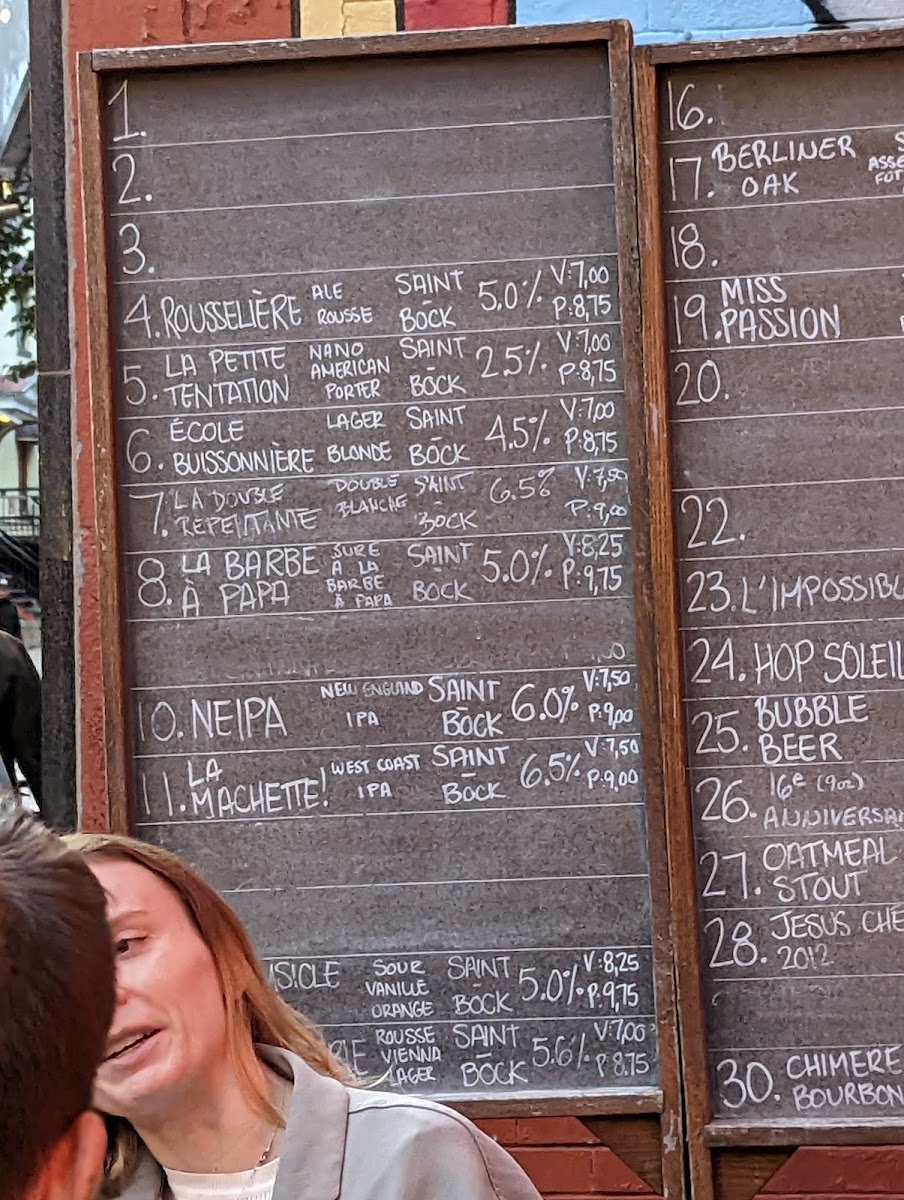 1.
2.
3.
4. ROUSSELIÈRE ALE ROUSSE SAINT - BOCK 5.0% V:7,00 P:8,75
5. LA PETITE TENTATION NANO AMERICAN PORTER SAINT - BOCK 2.5% V:7,00 P:8,75
6. ÉCOLE BUISSONNIÈRE LAGER BLONDE SAINT - BOCK 4.5% V:7,00 P:8,75
7. LA DOUBLE REPENTANTE DOUBLE BLANCHE SAINT - BOCK 6.5% V:7,50 P:9,00
8. LA BARBE À PAPA SURE À LA BARBE À PAPA SAINT - BOCK 5.0% V:8,25 P:9,75
10. NEIPA NEW ENGLAND IPA SAINT - BOCK 6.0% V:7,50 P:9,00
11. LA MACHETTE! WEST COAST IPA SAINT - BOCK 6.5% V:7,50 P:9,00
SICLE SOUR VANILLE ORANGE SAINT - BOCK 5.0% V:8,25 P:9,75
ROUSSE VIENNA LAGER SAINT - BOCK 5.6% V:7,00 P:8,75
16.
17. BERLINER OAK
18.
19. MISS PASSION
20.
22.
23. L'IMPOSSIBL
24. HOP SOLEIL
25. BUBBLE BEER
26. 16e (9oz) ANNIVERSA
27. OATMEAL STOUT
28. JESUS CHE 2012
30. CHIMERE BOURBON